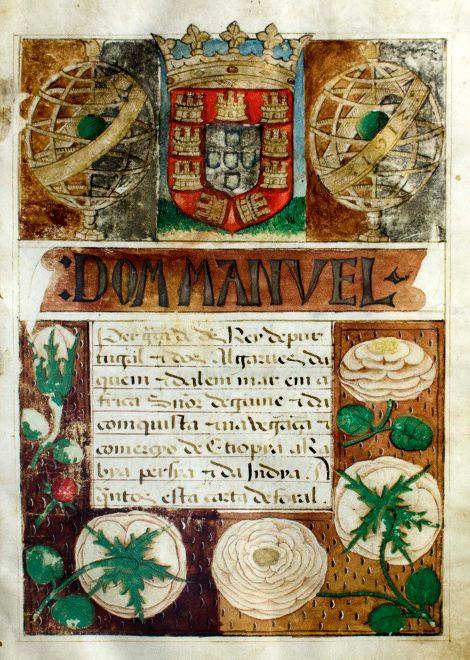 :DOM MANVEL
Per graça de ds Rey de pur
tugal ⁊ dos Algarues da
quem ⁊ dalem mar em a
frica Snor de guine ⁊ da
comquista ⁊ naūgaçã ⁊
comerçyo de Etiopia aRa
bya persya ⁊ da Indya. A
quãtos esta carta de foral